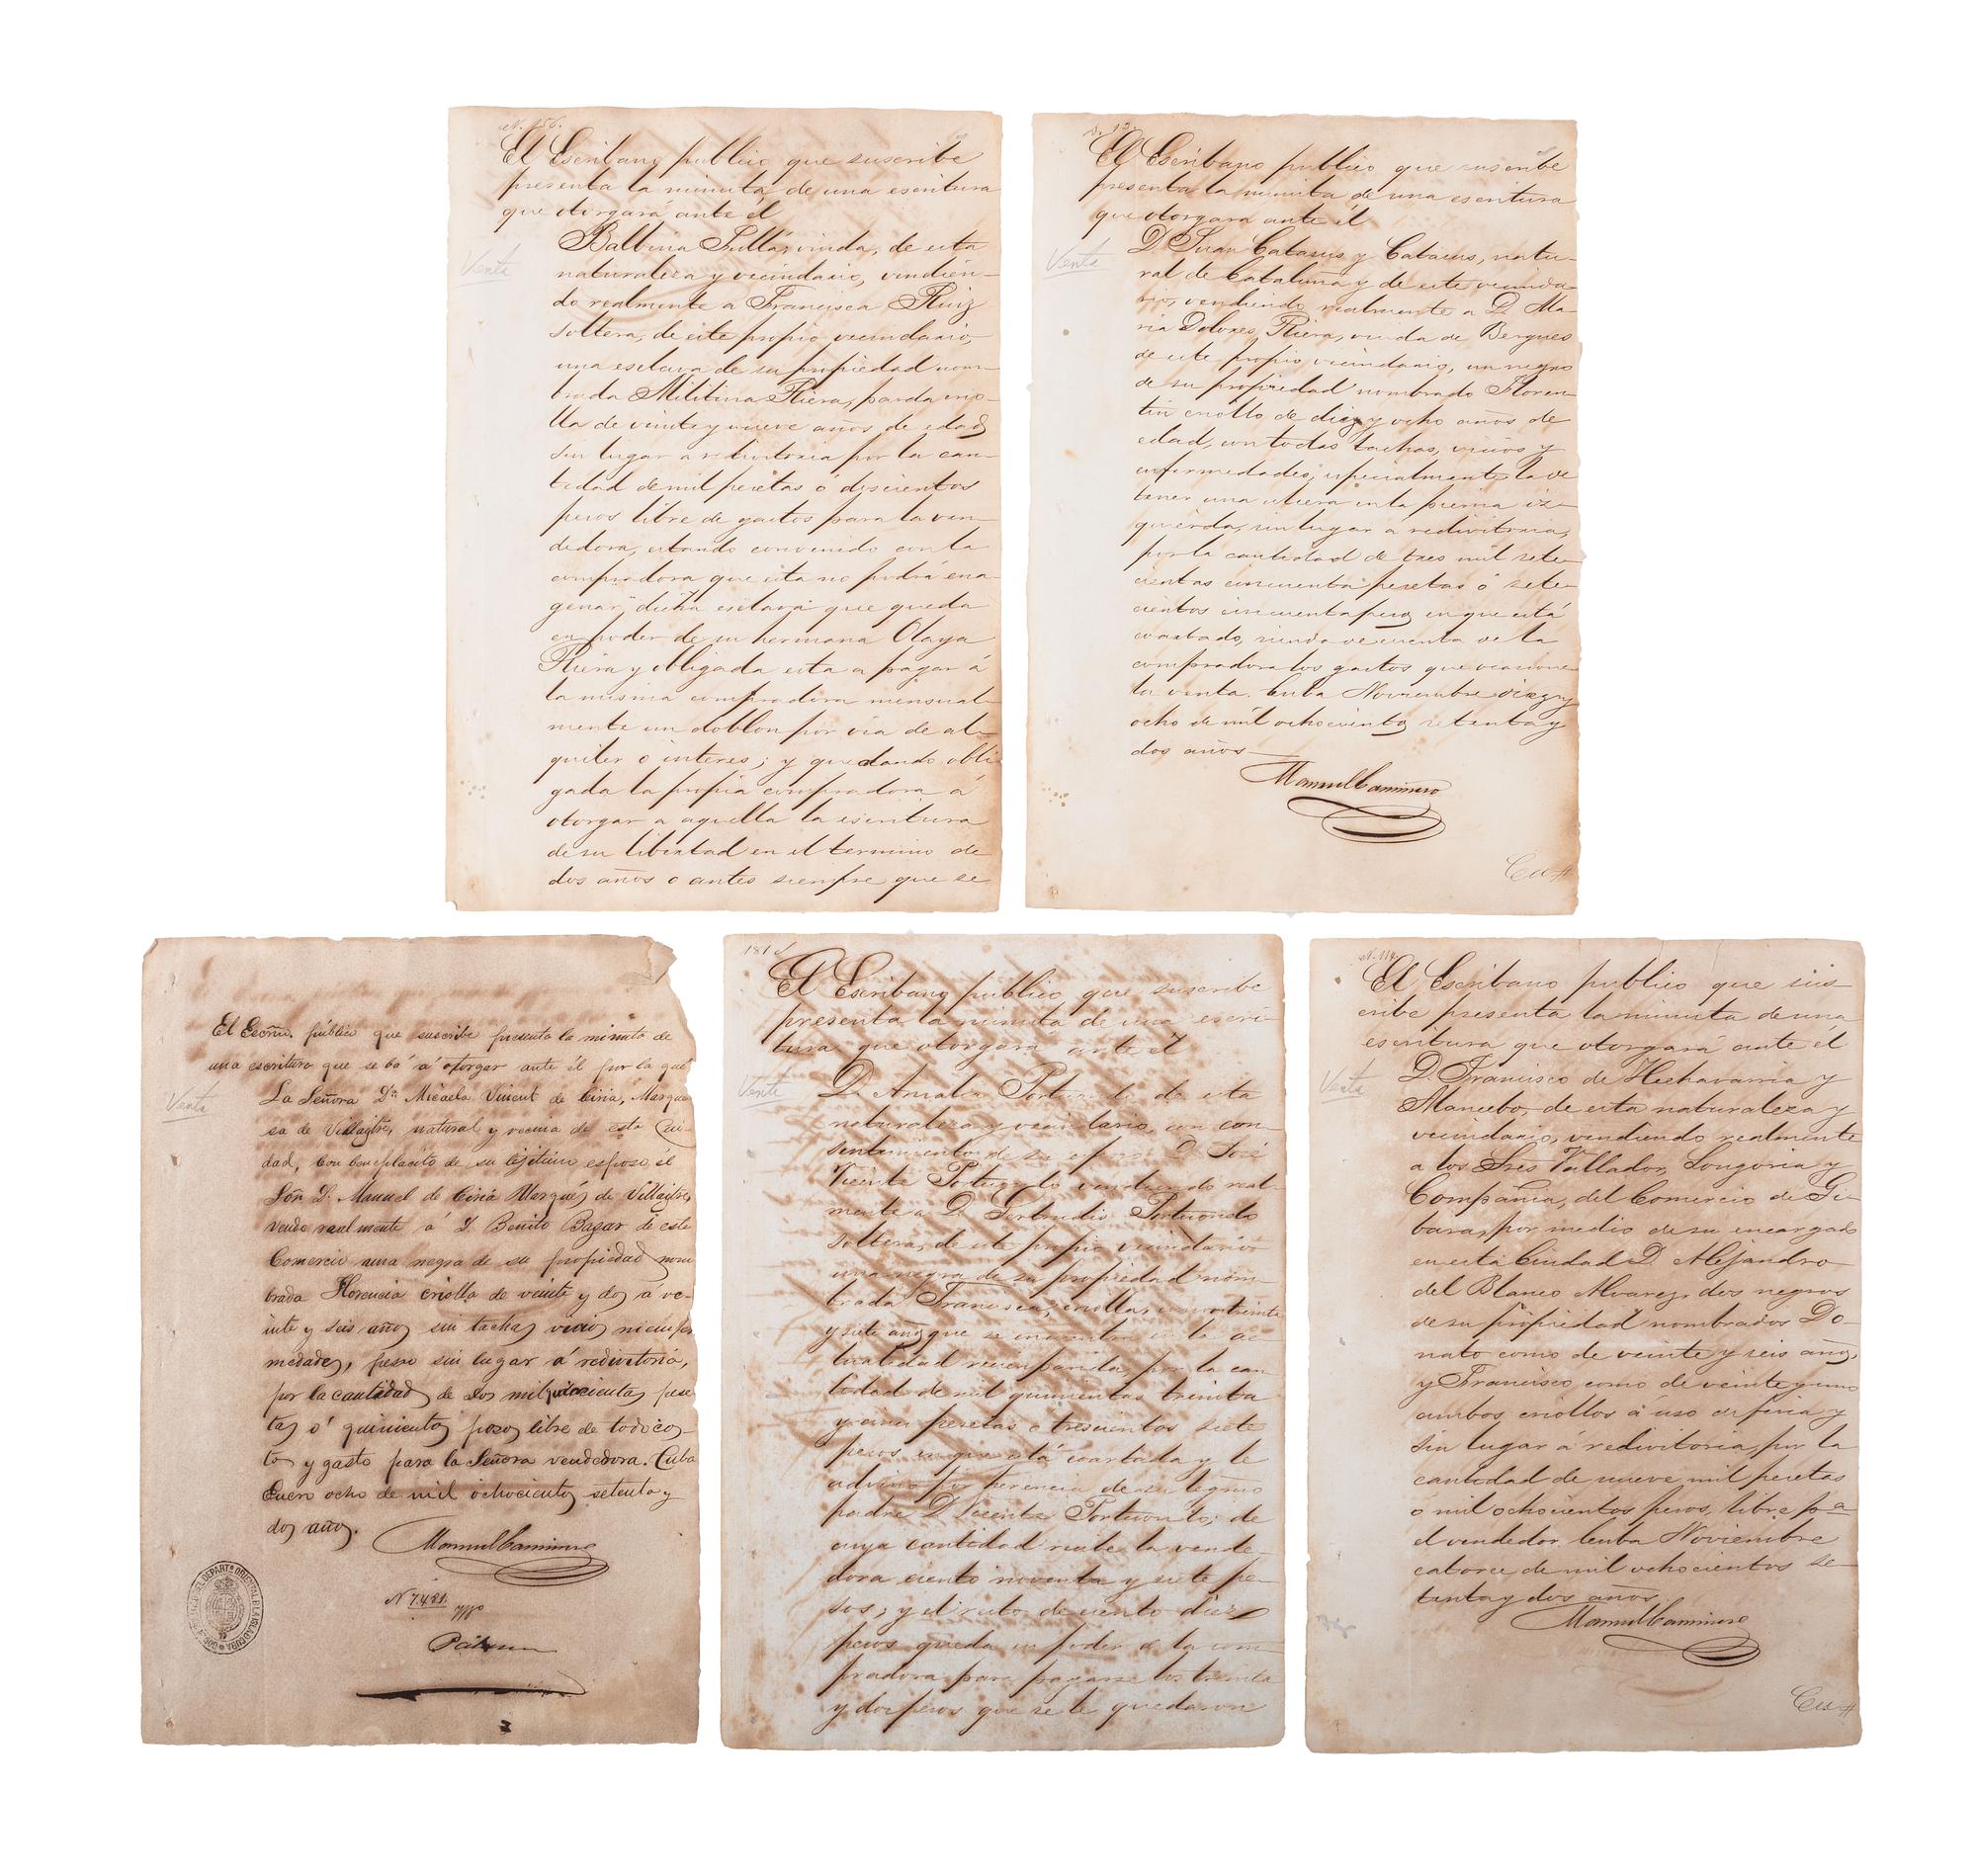 N. 156.
El Escribano publico que suscribe
presenta la minuta de una escritura
que otorgará ante él
Venta
Balbina Pullá, viuda, de esta
naturaleza y vecindario, vendien-
do realmente a Francisca Ruiz
soltera, de este propio vecindario,
una esclava de su propiedad nom-
brada Militina Riera, parda crio-
lla de veinte y nueve años de edad
sin lugar a redivitoria por la can-
tidad de mil pesetas ó doscientos
pesos libre de gastos para la ven-
dedora, estando convenido con la
compradora que esta no podrá ena-
genar dicha esclava que queda
en poder de su hermana Olaya
Riera y obligada esta a pagar á
la misma compradora mensual-
mente un doblon por via de al-
quiler o interes; y quedando obli-
gada la propia compradora á
otorgar a aquella la escritura
de su libertad en el termino de
dos años o antes siempre que se
El Escribano publico que suscribe
presenta la minuta de una escritura
que otorgara ante él
Venta
D. Juan Catasus y Catasus, natu-
ral de Cataluña y de este vecinda-
rio, vendiendo realmente a Dª Ma-
ria Dolores Riera, viuda de Bergues
de este propio vecindario, un negro
de su propiedad nombrado Floren-
tin criollo de diez y ocho años de
edad, con todas tachas, vicios y
enfermedades, especialmente la de
tener una ulcera en la pierna iz-
quierda, sin lugar a redivitoria,
por la cantidad de tres mil sete-
cientas cincuenta pesetas ó sete-
cientos cincuenta pesos en que está
coartado, siendo de cuenta de la
compradora los gastos que ocasione
la venta. Cuba Noviembre diez y
ocho de mil ochocientos setenta y
dos años
Manuel Caminero
El Escrno. público que suscribe presenta la minuta de
una escritura que se bá á otorgar ante él por la que
Venta
La Señora Dª Micaela Vinent de Ciria, Marque-
sa de Villaitre, natural y vecina de esta Ciu-
dad, con beneplacito de su lejitimo esposo él
Sôr. D. Manuel de Ciria Marqués de Villaitre,
vende realmente á D. Benito Bazar de este
Comercio una negra de su propiedad nom-
brada Florencia criolla de veinte y dos á ve-
inte y seis años sin tachas vicios ni enfer-
medades, pero sin lugar á redivitoria,
por la cantidad de dos mil quinientas pese-
tas ó quinientos pesos libre de todo cos-
to y gasto para la Señora vendedora. Cuba
Enero ocho de mil ochocientos setenta y
dos años.
Manuel Caminero
N 7.481.
El Escribano publico que suscribe
presenta la minuta de una escri-
tura que otorgara ante él
Venta
Dª Amalia Portuondo de esta
naturaleza y vecindario, con con-
sentimiento de su esposo D. José
Vicente Portuondo vendiendo real-
mente a Dª Gertrudis Portuondo
soltera, de este propio vecindario
una negra de su propiedad nom-
brada Francisca, criolla, como treinta
y siete años que se encuentra en la ac-
tualidad, por la can-
tidad de mil quinientas treinta
y cinco pesetas o trescientos siete
pesos en que está coartada y le
adivino por herencia de su legmo
padre D. Vicente Portuondo; de
cuya cantidad recibe la vende-
dora ciento noventa y siete pe-
sos; y el resto de ciento diez
pesos queda en poder de la com-
pradora para pagarse los treinta
y dos pesos que se le quedaron
N. 114.
El Escribano publico que sus-
cribe presenta la minuta de una
escritura que otorgará ante él
Venta
D. Francisco de Hechavarria y
Mancebo, de esta naturaleza y
vecindario, vendiendo realmente
a los Sres Vallador, Longoria y
Compañia, del Comercio de Gi-
bara, por medio de su encargado
en esta Ciudad D. Alejandro
del Blanco Alvarez, dos negros
de su propiedad nombrados Do-
nato como de veinte y seis años,
y Francisco como de veinte y uno
ambos criollos a uso de feria y
sin lugar á redivitoria, por la
cantidad de nueve mil pesetas
o mil ochocientos pesos, libre pª
el vendedor. Cuba Noviembre
catorce de mil ochocientos se-
tenta y dos años.
Manuel Caminero